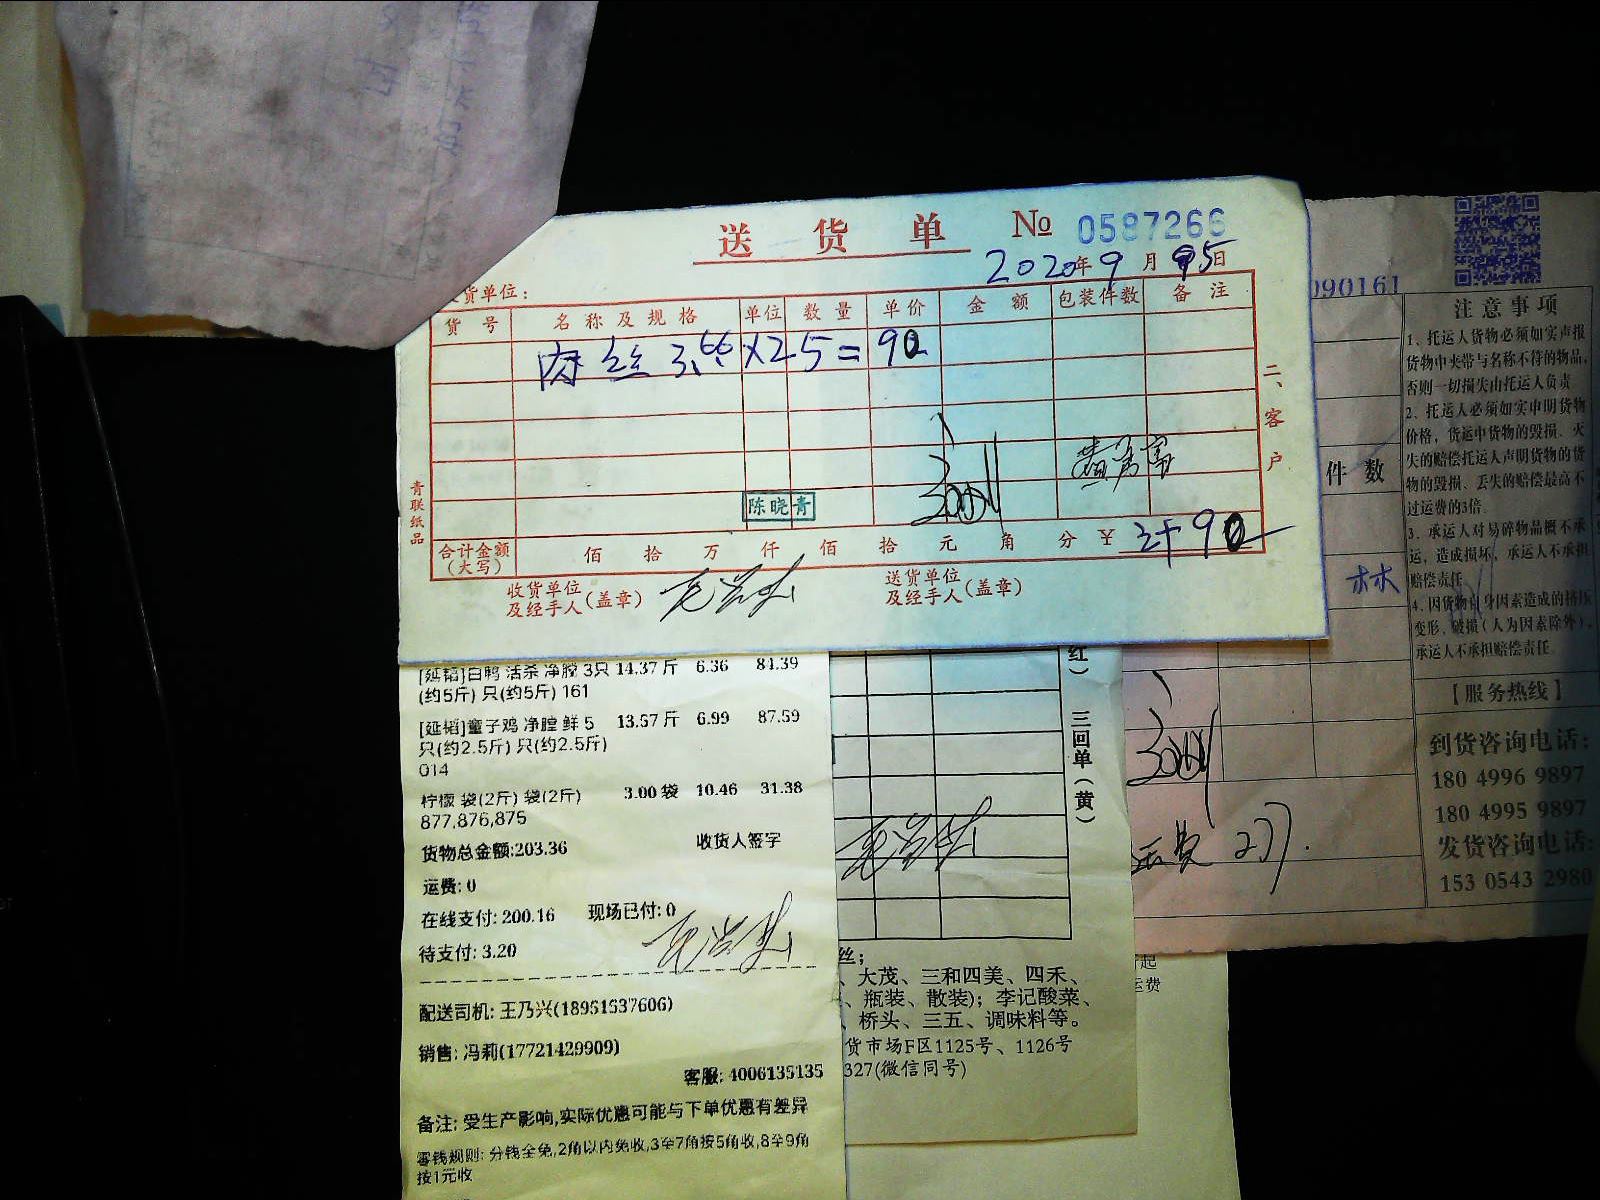 送货单 № 0587266
2020年9月 日
货单位：
货号 名称及规格 单位 数量 单价 金额 包装件数 备注
肉丝 3.66×25=90
二、客户
青联纸品
陈晓青
合计金额(大写) 佰 拾 万 仟 佰 拾 元 角 分 ¥ 计90
收货单位及经手人(盖章)
送货单位及经手人(盖章)
[延韬]白鸭 活杀 净膛 3只 14.37 斤 6.36 84.39
(约5斤) 只(约5斤) 161
[延韬]童子鸡 净膛 鲜 5 13.57 斤 6.99 87.59
只(约2.5斤) 只(约2.5斤)
014
柠檬 袋(2斤) 袋(2斤) 3.00 袋 10.46 31.38
877,876,875
货物总金额:203.36 收货人签字
运费: 0
在线支付: 200.16 现场已付: 0
待支付: 3.20
配送司机: 王乃兴(18951537606)
销售: 冯莉(17721429909)
客服: 4006135135
备注: 受生产影响,实际优惠可能与下单优惠有差异
零钱规则: 分钱全免,2角以内免收,3至7角按5角收,8至9角
按1元收
红）
三回单（黄）
丝；
、大茂、三和四美、四禾、
、瓶装、散装)；李记酸菜、
、桥头、三五、调味料等。
货市场F区1125号、1126号
327(微信同号)
090161
件数
林
运费 277.
起
运费
注意事项
1、托运人货物必须如实声报
货物中夹带与名称不符的物品，
否则一切损失由托运人负责
2、托运人必须如实申明货物
价格，货运中货物的毁损、灭
失的赔偿托运人声明货物的货
物的毁损、丢失的赔偿最高不
过运费的3倍。
3、承运人对易碎物品概不承
运，造成损坏，承运人不承担
赔偿责任
4、因货物自身因素造成的挤压
变形，破损(人为因素除外)，
承运人不承担赔偿责任。
【服务热线】
到货咨询电话：
180 4996 9897
180 4995 9897
发货咨询电话：
153 0543 2980